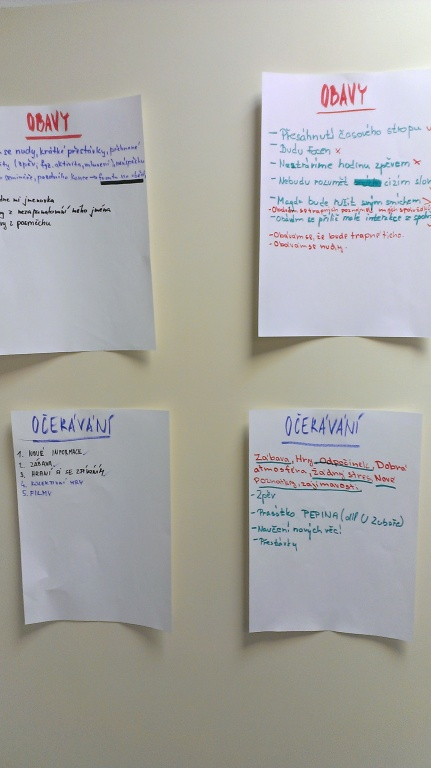 OBAVY
se nudy, krátké přestávky,
fronta na obědy
mi jmenovka
z nezapamatování mého jména
z posměchu
OBAVY
- Přesáhnutí časového stropu
- Budu focen x
- Neztrávíme hodinu zpěvem x
- Nebudu rozumět cizím slov
- Magda bude RUŠIT svým smíchem
- Obávám se příliš málo interakce
- Obávám se, že bude trapné ticho.
- Obávám se nudy.
OČEKÁVÁNÍ
1. NOVÉ INFORMACE
2. ZÁBAVA
3. HRANÍ SI SE ZVÍŘÁTKY
4. KOLEKTIVNÍ HRY
5. FILMY
OČEKÁVÁNÍ
Zábava, Hry, Odpočinek, Dobrá
atmosféra, Žádný stres, Nové
poznatky, zajímavosti.
- Zpěv
- Prasátko PEPINA (díl U Zubaře)
- Naučení nových věcí
- Přestávky